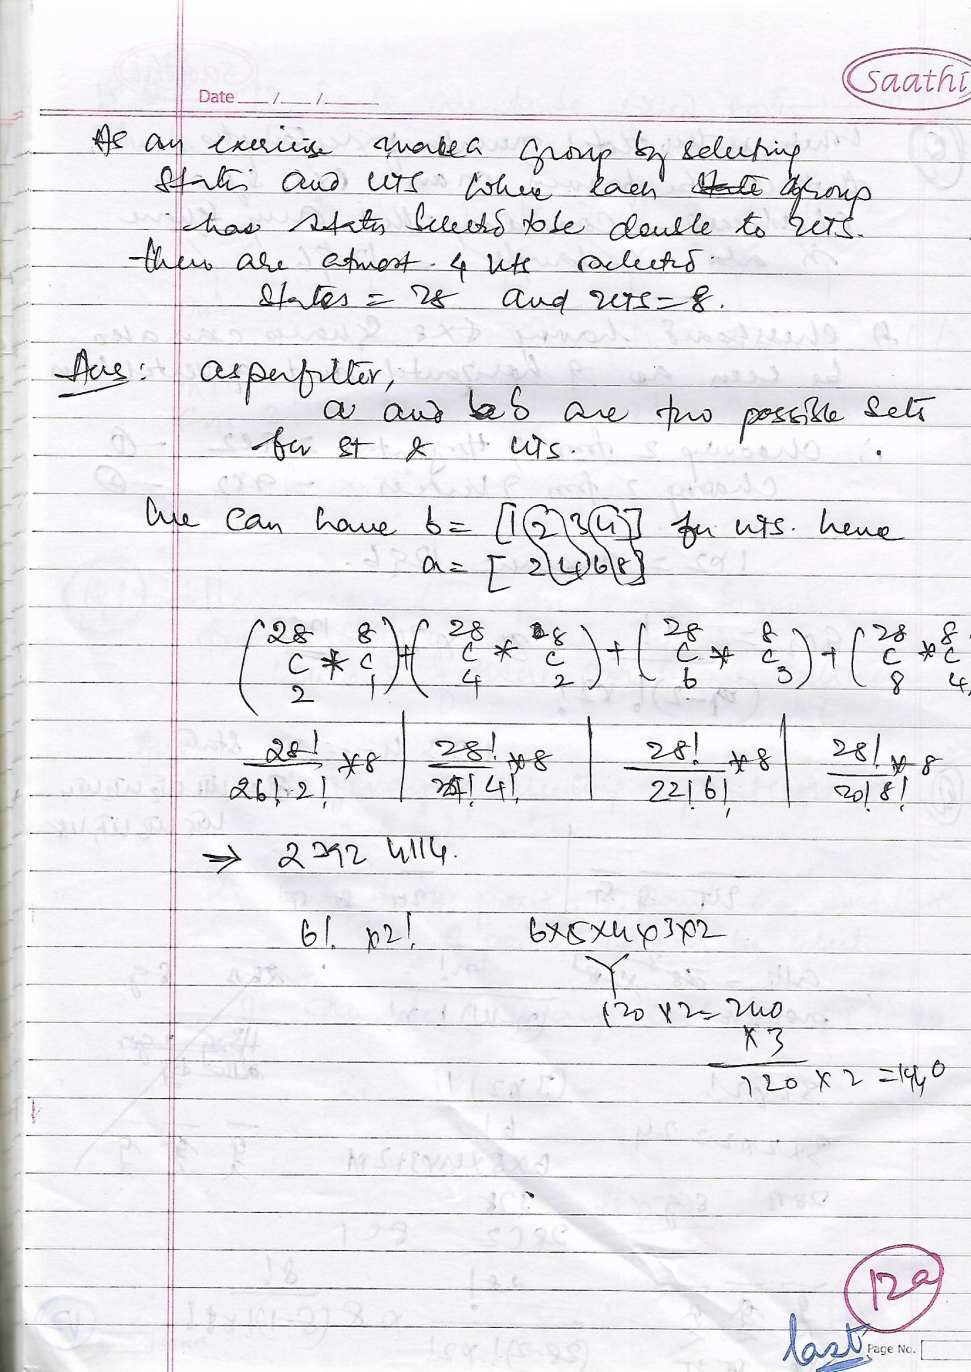 saathi
Date __/__/__
As an exercise make a group by selecting
States and UTS where each State group
has states selected to be double to UTS.
there are atmost 4 uts selected.
States = 28 and UTS = 8.
Ans: as per filter,
a and b are two possible sets
for st & UTS.
We can have b = [1 2 3 4] for UTS. hence
a = [ 2 4 6 8 ]
(28 C 2 * 8 C 1) + (28 C 4 * 8 C 2) + (28 C 6 * 8 C 3) + (28 C 8 * 8 C 4
28! / 26! 2! * 8 | 28! / 4! * 8 | 28! / 22! 6! * 8 | 28! / 20! 8! * 8
⇒ 23924114.
6! x 2! 6x5x4x3x2
120 x 2 = 240
x 3
720 x 2 = 1440
12a
last
Page No.